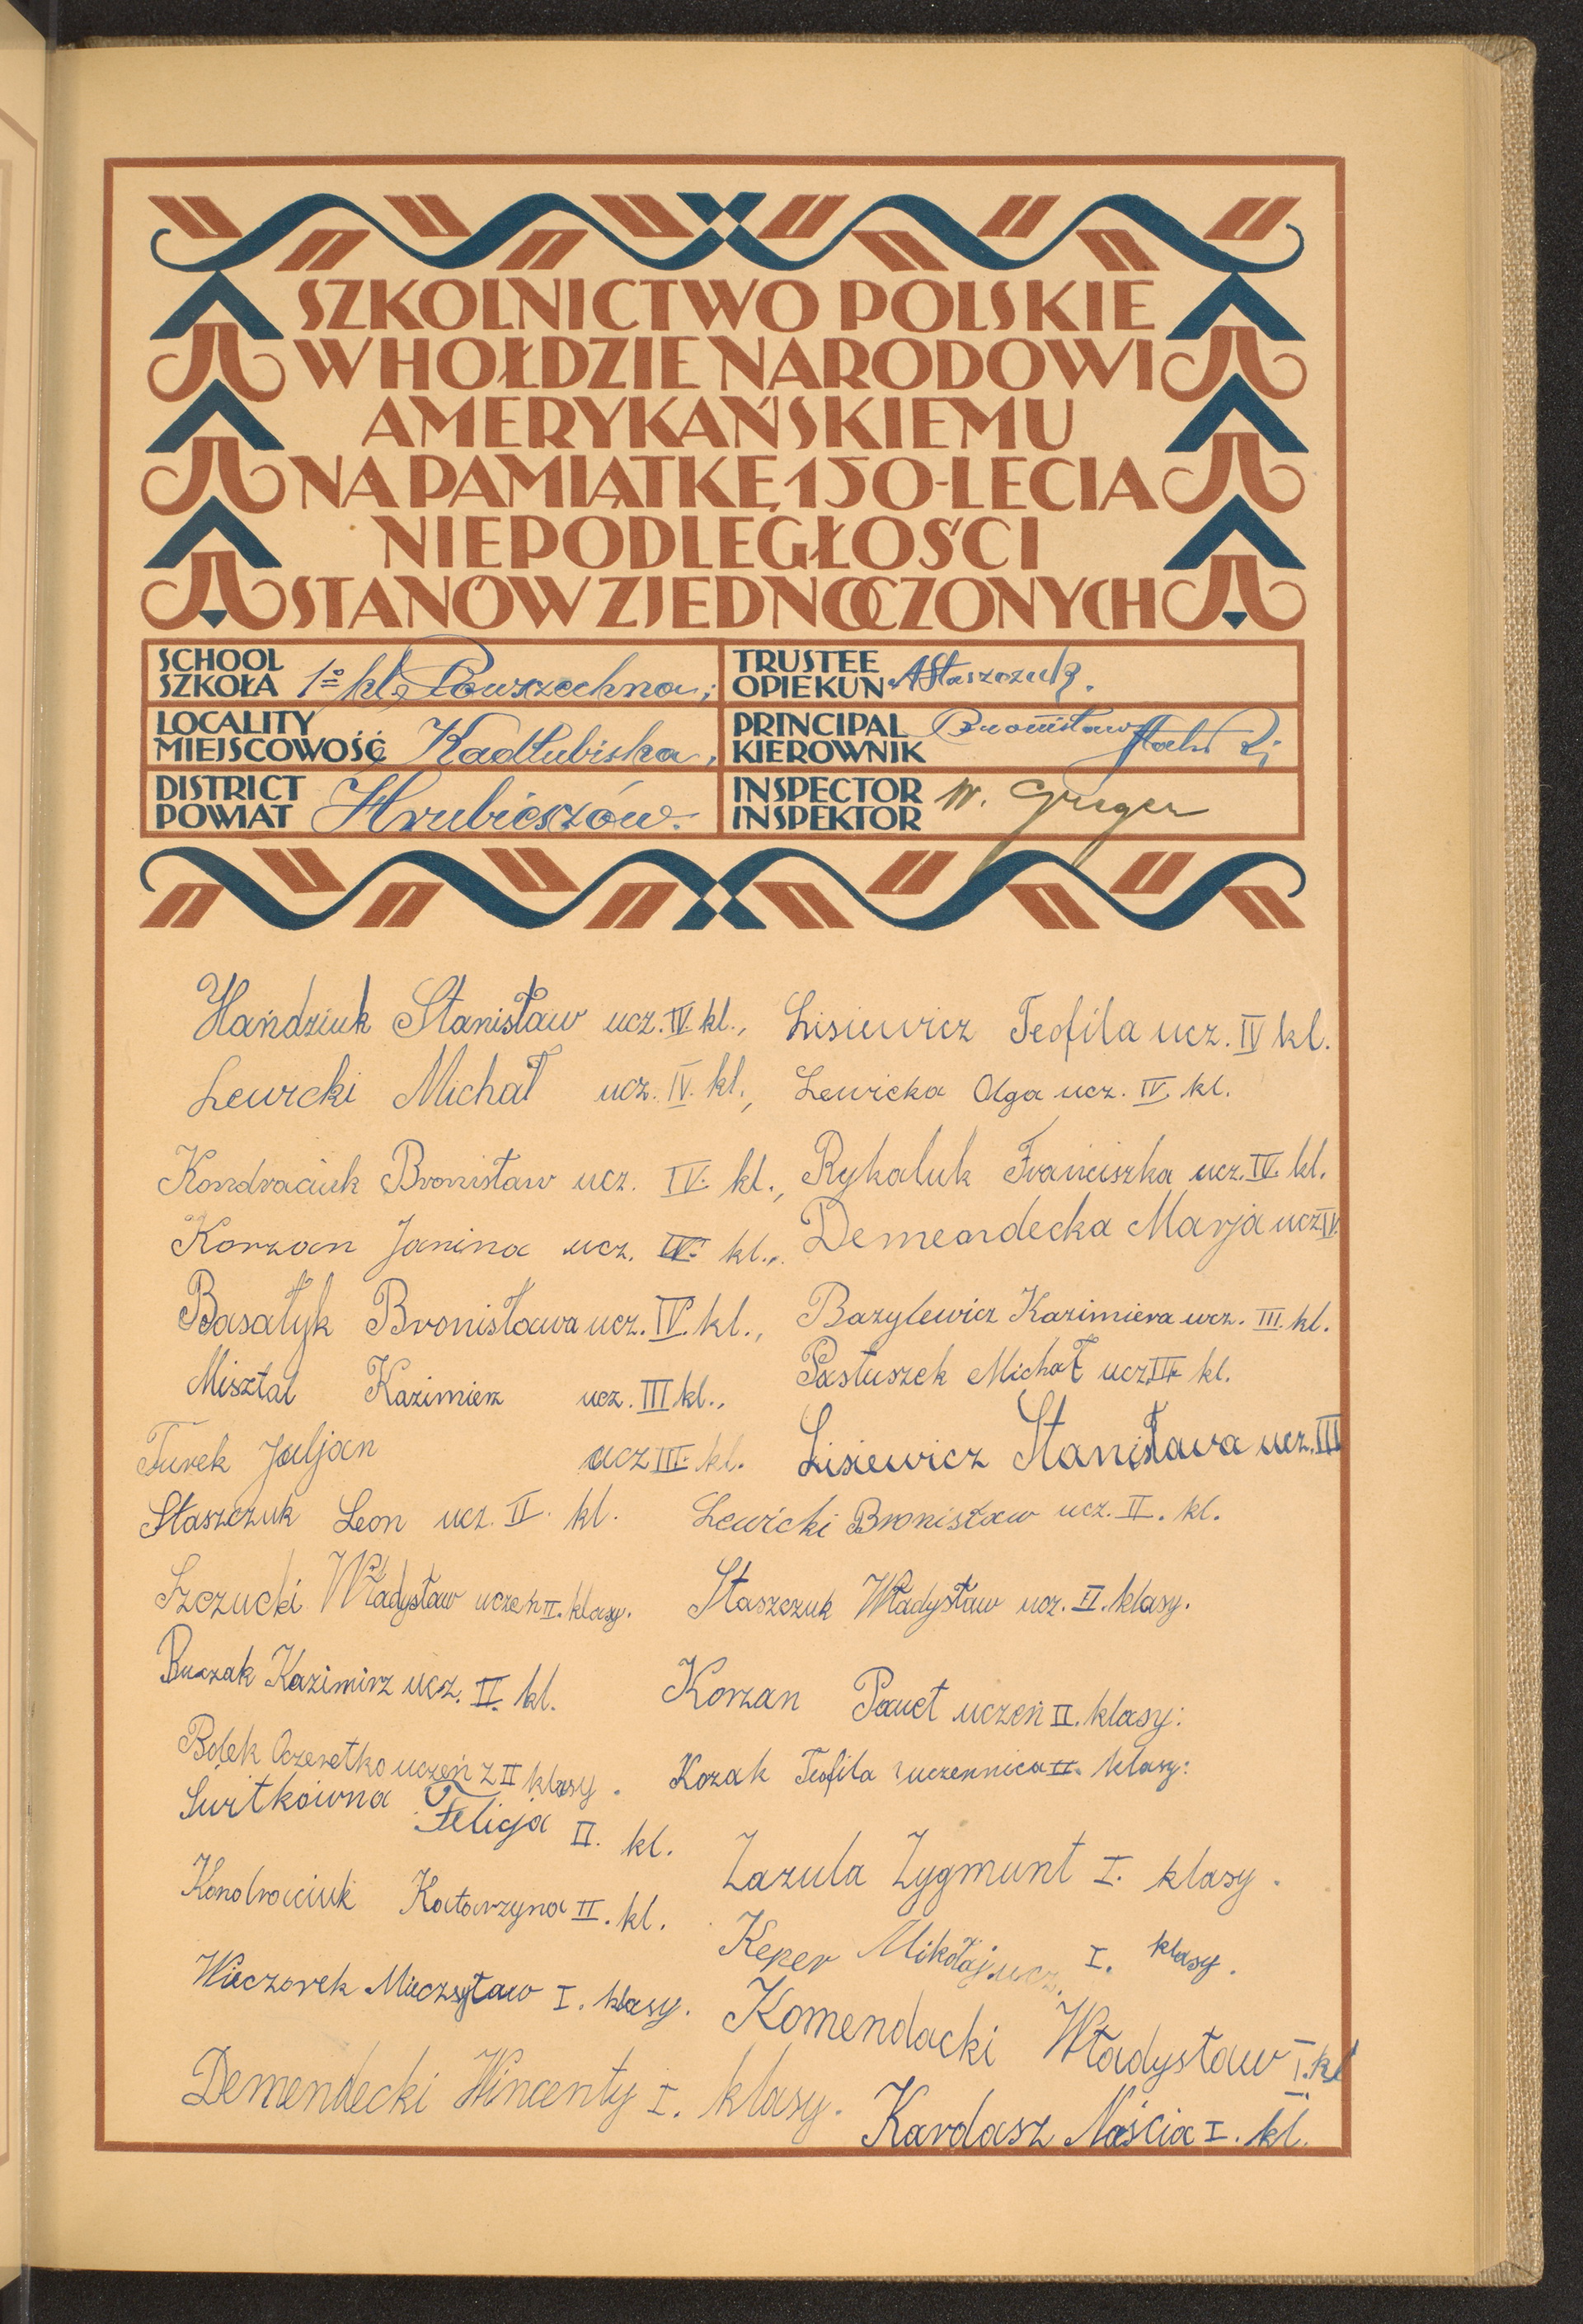 SZKOLNICTWO POLSKIE
W HOŁDZIE NARODOWI
AMERYKAŃSKIEMU
NA PAMIĄTKĘ 150-LECIA
NIEPODLEGŁOŚCI
STANÓW ZJEDNOCZONYCH
SCHOOL
SZKOŁA 1º kl. Powszechna;
TRUSTEE
OPIEKUN AStaszczuk.
LOCALITY
MIEJSCOWOŚĆ Kadłubiska,
PRINCIPAL
KIEROWNIK Bronisław
DISTRICT
POWIAT Hrubieszów.
INSPECTOR
INSPEKTOR W. Greger
Hańdziuk Stanisław ucz. IV. kl., Lisiewicz Teofila ucz. IV kl.
Lewicki Michał ucz. IV. kl., Lewicka Olga ucz. IV. kl.
Kondraciuk Bronisław ucz. IV. kl., Rykaluk Franciszka ucz. IV. kl.
Korzan Janina ucz. IV. kl., Demendecka Marja ucz IV.
Basałyk Bronisława ucz. IV. kl., Bazylewicz Kazimiera ucz. III. kl.
Misztal Kazimierz ucz. III kl., Pastuszek Michał ucz III kl.
Turek Juljan ucz III. kl. Lisiewicz Stanisława ucz. III
Staszczuk Leon ucz. II. kl. Lewicki Bronisław ucz. II. kl.
Szczucki Władysław uczeń II. klasy. Staszczuk Władysław ucz. II. klasy.
Buczak Kazimirz ucz. II. kl. Korzan Paweł uczeń II. klasy:
Bolek Oczeretko uczeń z II klasy. Kozak Teofila uczennica II. klasy:
Świtkówna Felicja II. kl.
Zazula Zygmunt I. klasy.
Kondraciuk Katarzyna II. kl.
Keper Mikołaj ucz. I. klasy.
Wieczorek Mieczsyław I. klasy.
Komendacki Władysław I. kl
Demendecki Wincenty I. klasy.
Kardasz Naścia I. kl.